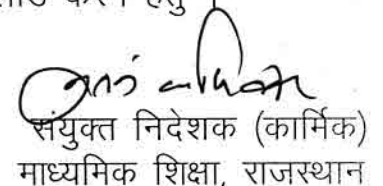 करने हेतु ।
संयुक्त निदेशक (कार्मिक)
माध्यमिक शिक्षा, राजस्थान